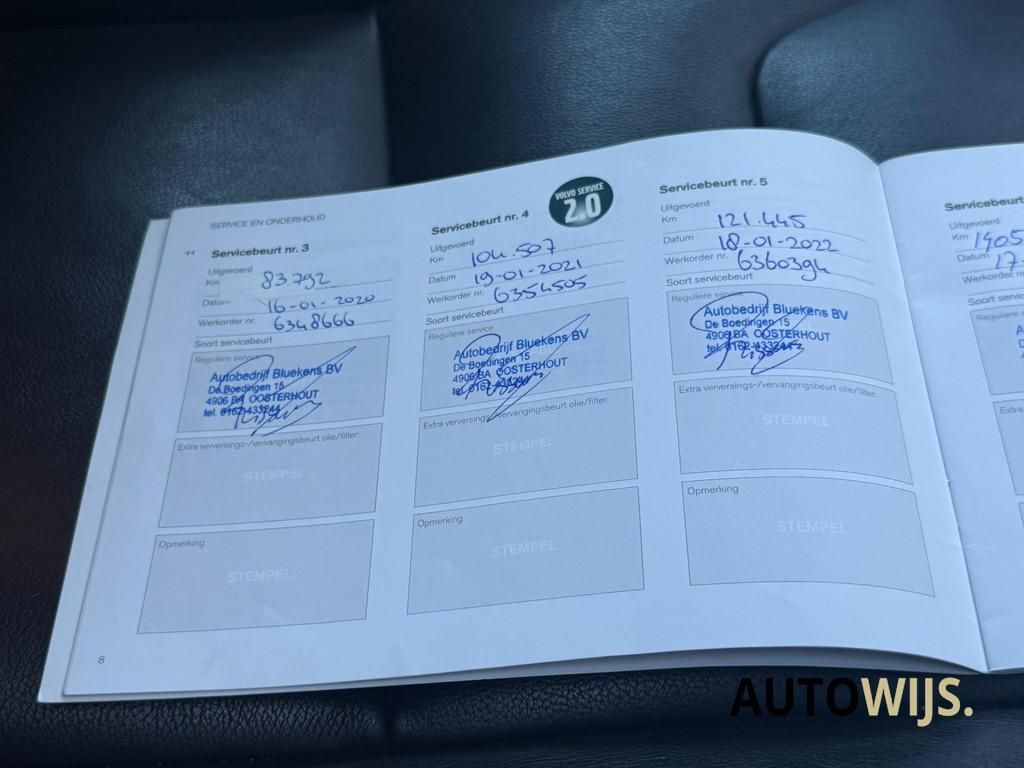 SERVICE EN ONDERHOUD
Servicebeurt nr. 3
Uitgevoerd
Km 83.792
Datum 16-01-2020
Werkorder nr. 6348666
Soort servicebeurt
Reguliere service
Autobedrijf Bluekens BV
De Boedingen 15
4906 BA OOSTERHOUT
tel. 0162-433244
Extra verversings-/vervangingsbeurt olie/filter:
STEMPEL
Opmerking
STEMPEL
8
Servicebeurt nr. 4
VOLVO SERVICE
2.0
Uitgevoerd
Km 104.507
Datum 19-01-2021
Werkorder nr. 6354505
Soort servicebeurt
Reguliere service
Autobedrijf Bluekens BV
De Boedingen 15
4906 BA OOSTERHOUT
tel. 0162-433244
Extra verversings-/vervangingsbeurt olie/filter:
STEMPEL
Opmerking
STEMPEL
Servicebeurt nr. 5
Uitgevoerd
Km 121.445
Datum 18-01-2022
Werkorder nr. 6360394
Soort servicebeurt
Reguliere service
Autobedrijf Bluekens BV
De Boedingen 15
4906 BA OOSTERHOUT
tel. 0162-433244
Extra verversings-/vervangingsbeurt olie/filter:
STEMPEL
Opmerking
STEMPEL
Servicebeurt
Uitgevoerd
Km 1405
Datum 17-
Werkorder nr
Soort servic
Reguliere
Extra
Opm
AUTOWIJS.